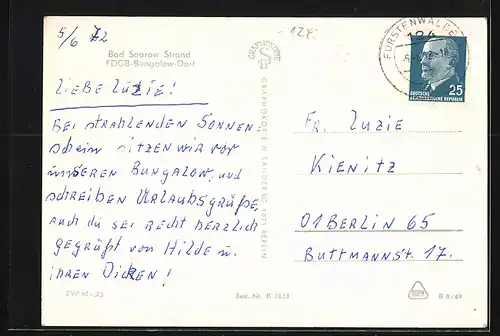 5/6 72
Bad Saarow Strand
FDGB-Bungalow-Dorf
LIEBE LUZIE!
BEI STRAHLENDEN SONNEN.
schein sitzen wir vor
unseren Bungalow und
schreiben Urlaubsgrüße.
Auch du sei recht herzlich
gegrüßt von Hilde u.
ihren Dicken!
EVP M -,25
Best.-Nr. B 2838
GRAPHOKOPIE
GRAPHOKOPIE H. SANDER KG 1071 BERLIN
124
FÜRSTENWALDE
DEUTSCHE
DEMOKRATISCHE REPUBLIK
25
Fr. Luzie
Kienitz
01 BERLIN 65
BUTTMANNST. 17.
B 8/69